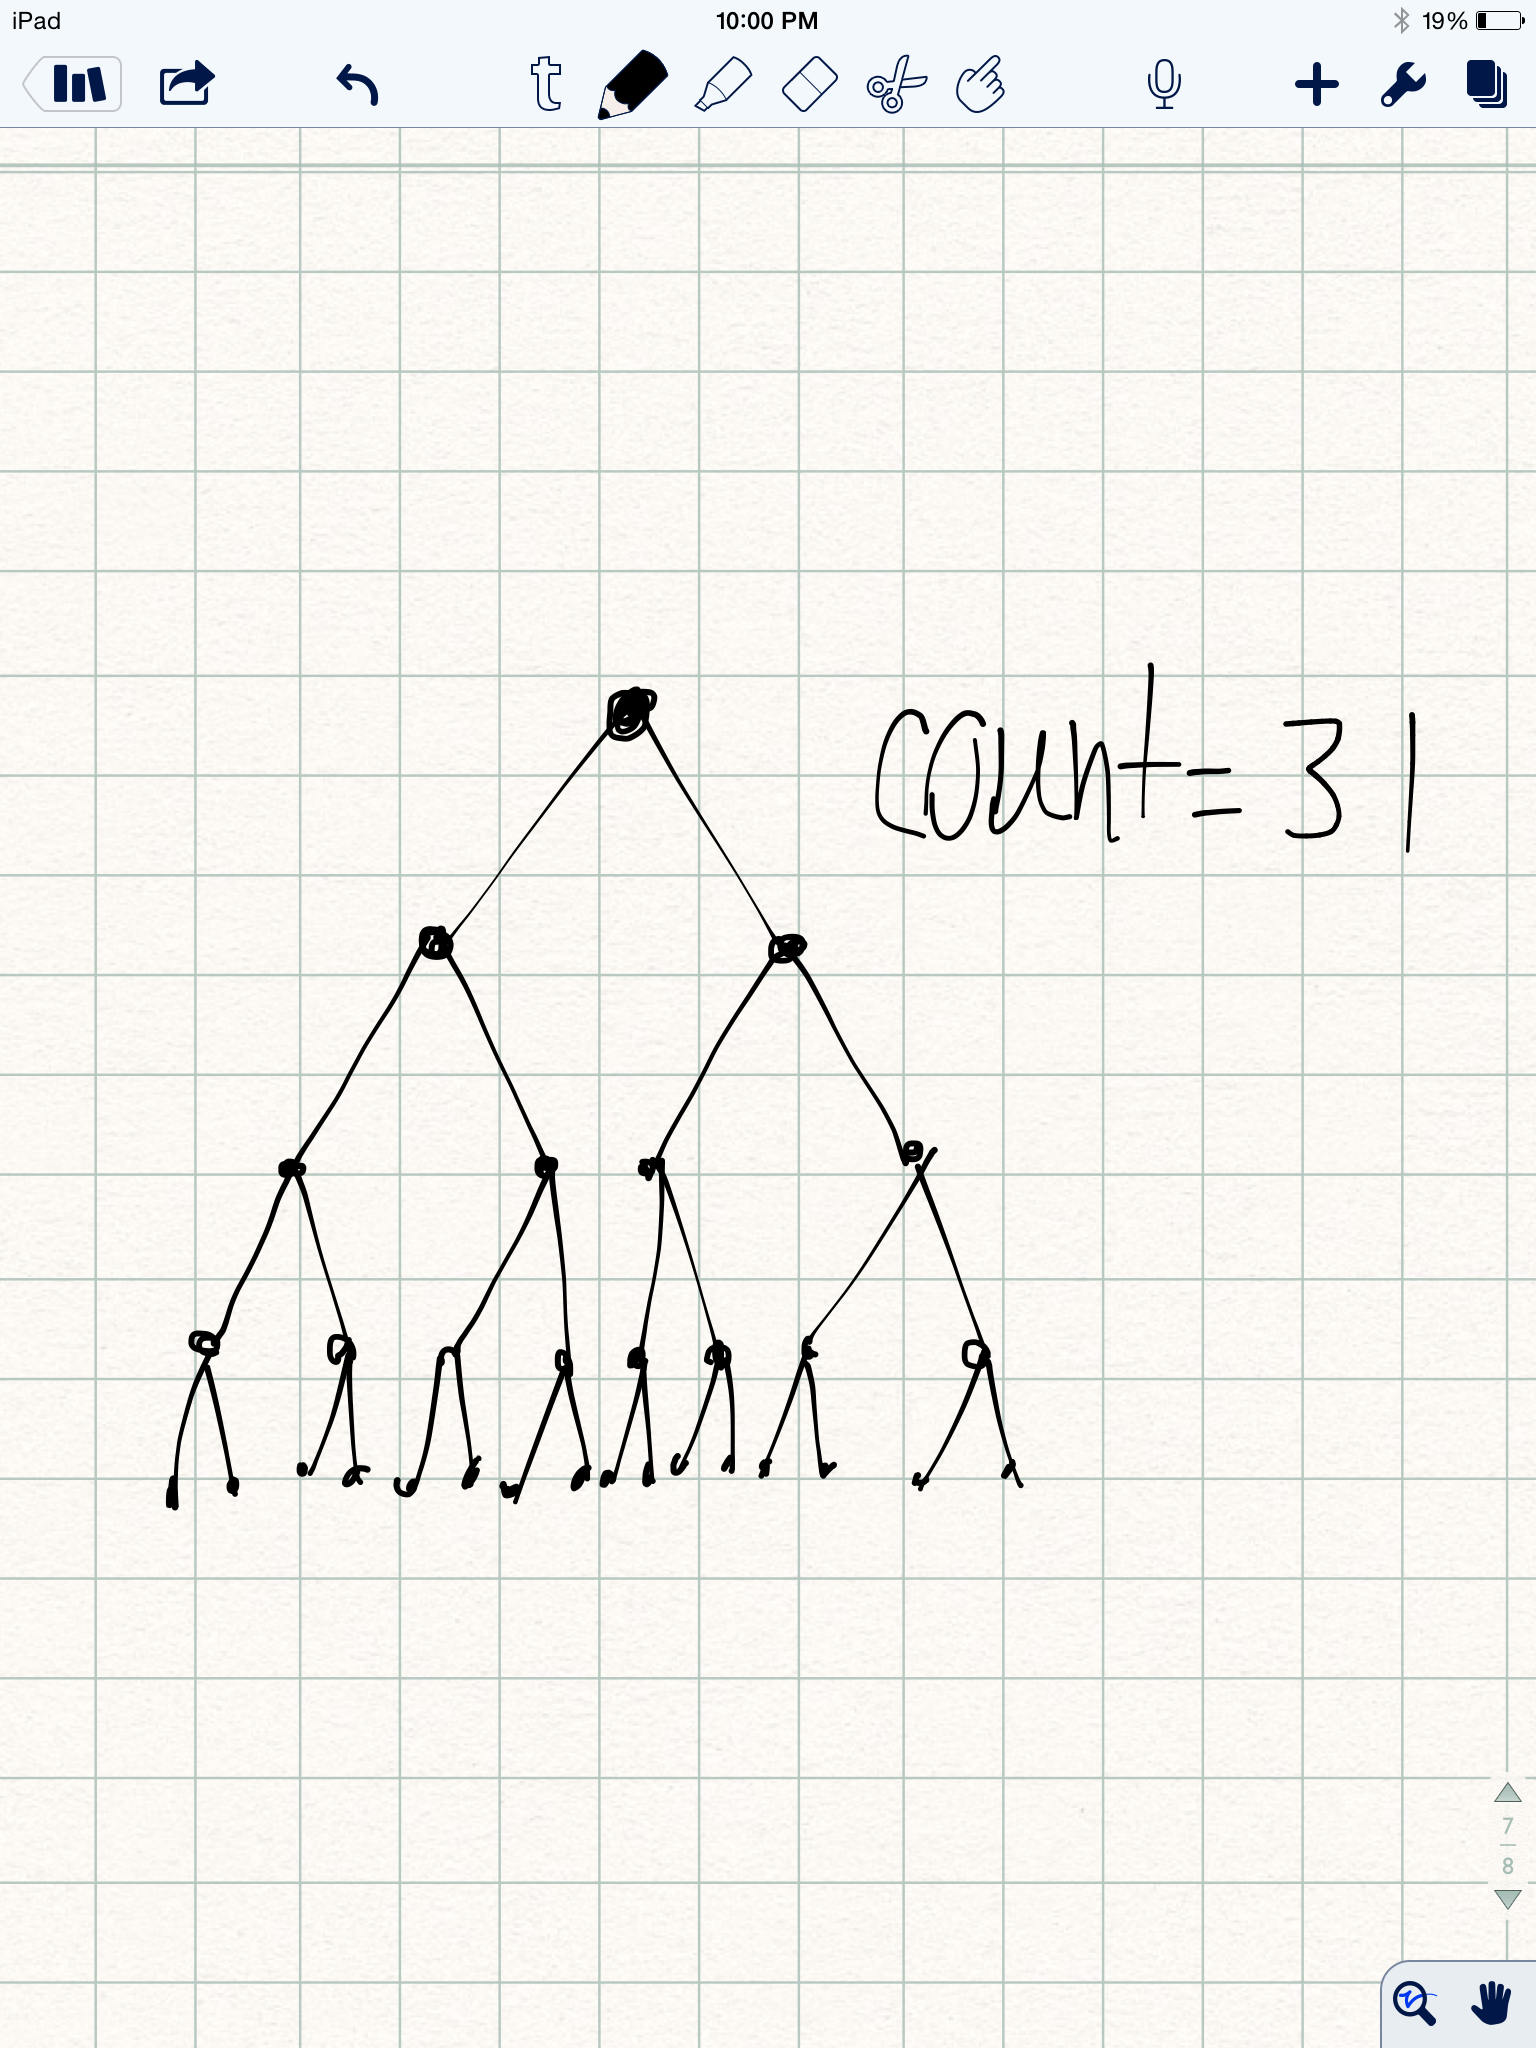 iPad 10:00 PM 19%
t
count = 31
7
8